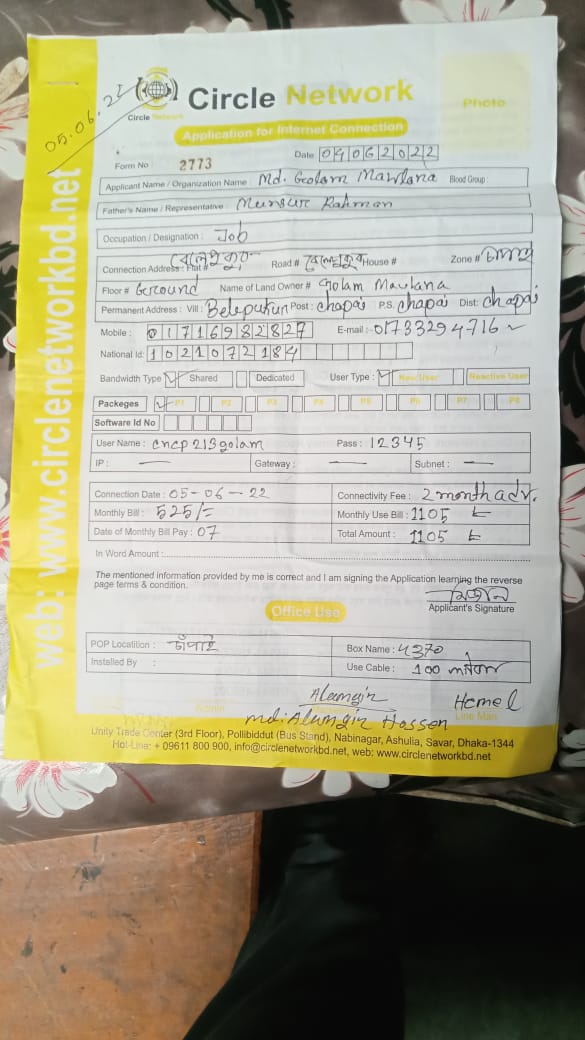 05.06.22
Circle Network
Circle Network
Photo
Application for Internet Connection
Form No 2773 Date 04062022
Applicant Name / Organization Name : Md. Golam Mawlana Blood Group :
Father's Name / Representative : Munsur Rahman
Occupation / Designation : Job
Connection Address : Flat # বেলেপুকুর Road # বেলেপুকুর House # Zone #
Floor # Ground Name of Land Owner # Golam Mawlana
Permanent Address : Vill : Belepukur Post : chapai P.S. chapai Dist : chapai
Mobile : 01716982827 E-mail : 01733294716
National Id : 1021072184
Bandwidth Type Shared Dedicated User Type : New User Reactive User
Packeges P1 P2 P3 P4 P5 P6 P7 P8
Software Id No
User Name : cncp213golam Pass : 12345
IP : — Gateway : — Subnet : —
Connection Date : 05-06-22 Connectivity Fee : 2 month adv.
Monthly Bill : 525/= Monthly Use Bill : 1105 ৳
Date of Monthly Bill Pay : 07 Total Amount : 1105 ৳
In Word Amount :
The mentioned information provided by me is correct and I am signing the Application learning the reverse
page terms & condition.
Applicant's Signature
Office Use
POP Locatition : চাঁপাই Box Name : 4370
Installed By : Use Cable : 100 মিটার
Alamgir Hemel
Admin Line Man
md: Alamgir Hossen
Unity Trade Center (3rd Floor), Pollibiddut (Bus Stand), Nabinagar, Ashulia, Savar, Dhaka-1344
Hot-Line: + 09611 800 900, info@circlenetworkbd.net, web: www.circlenetworkbd.net
web: www.circlenetworkbd.net